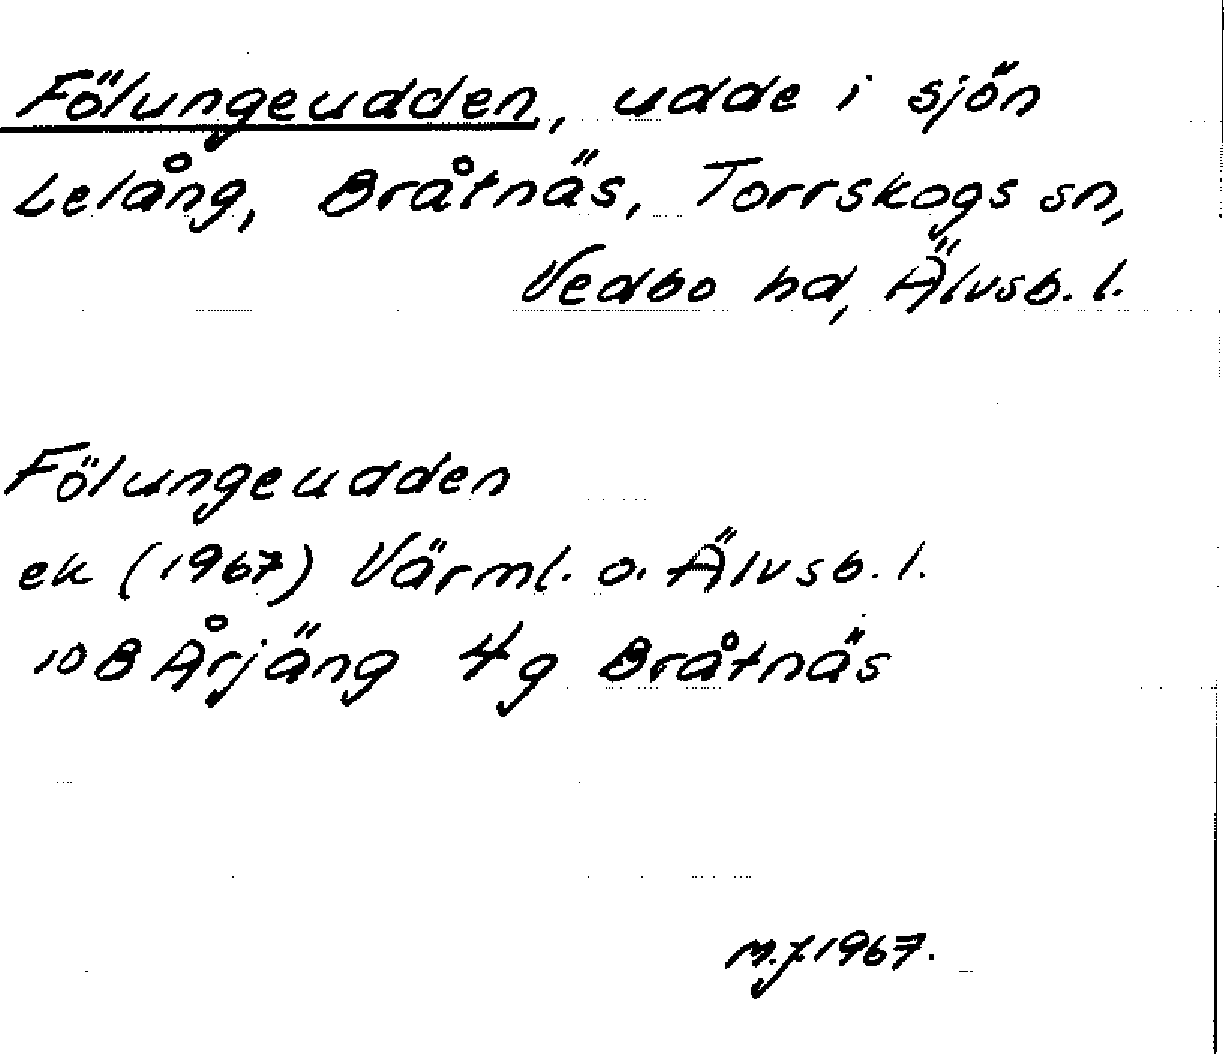 Fölungeudden, udde i sjön
Lelång, Bråtnäs, Torrskogs sn,
Vedbo hd, Älvsb. l.
Fölungeudden
ek (1967) Värml. o. Älvsb. l.
10 B Årjäng 4g Bråtnäs
M.J. 1967.